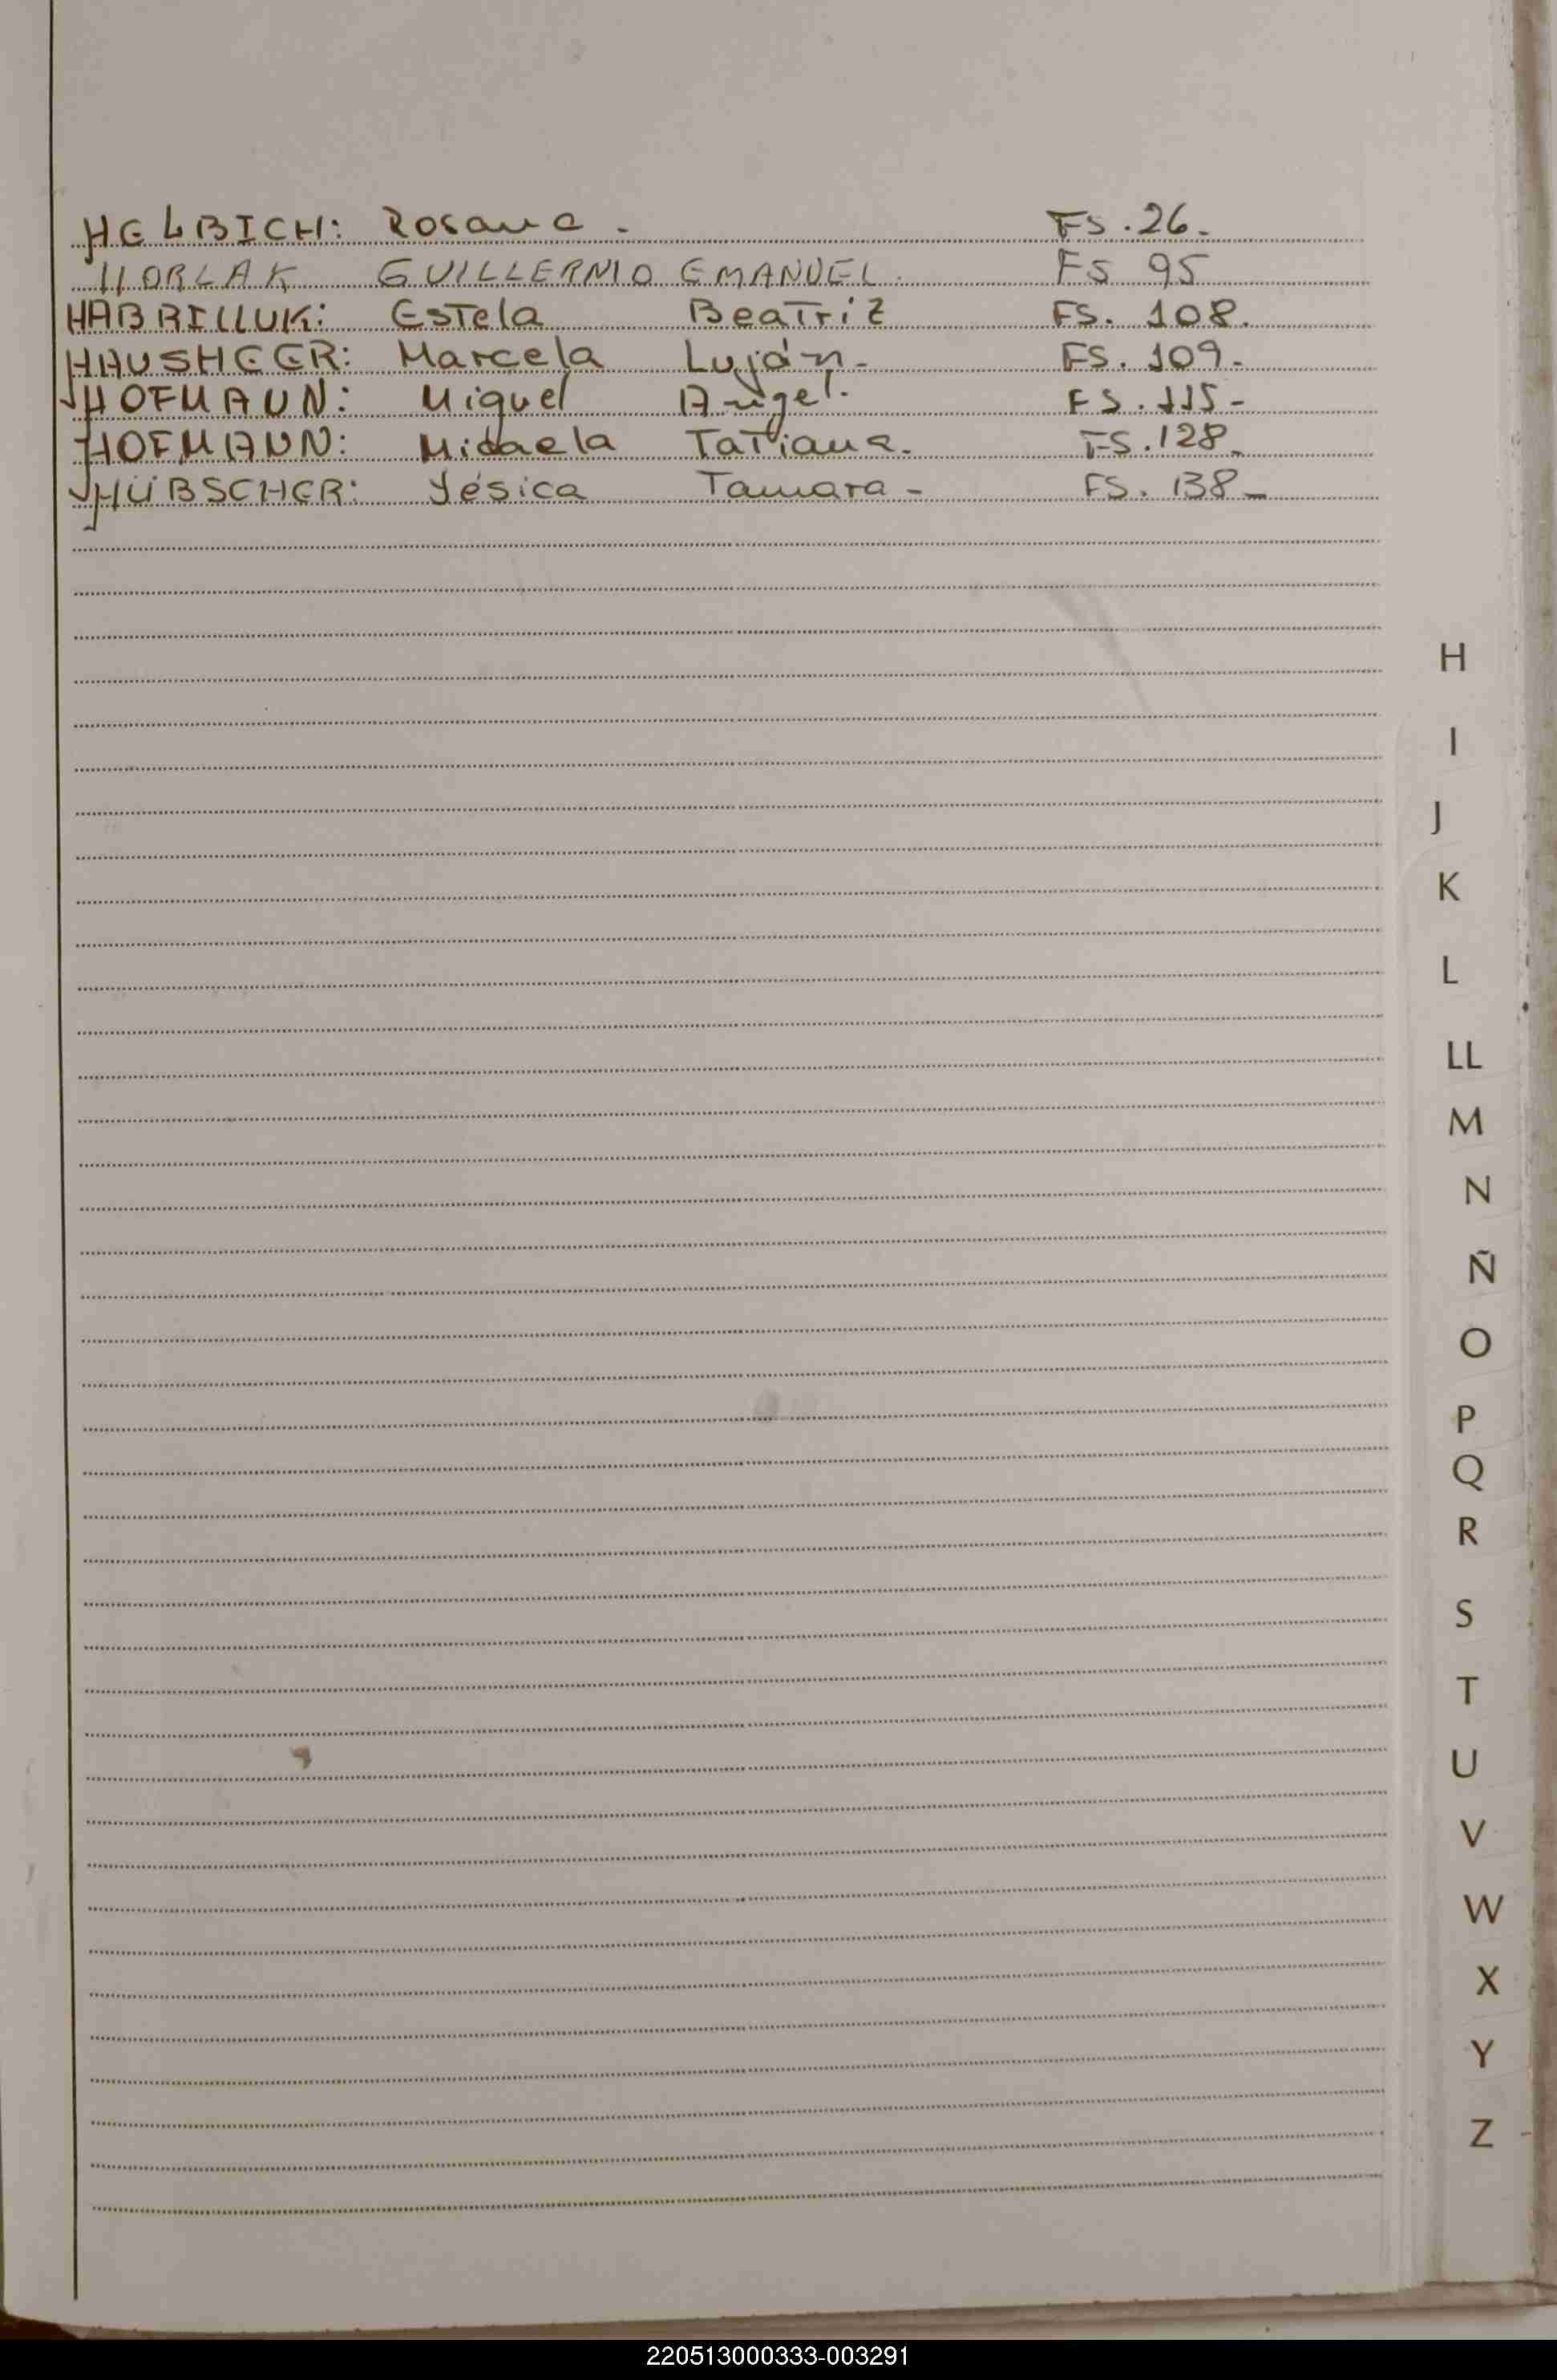 HELBICH: Rosana - FS. 26-
HORLAK GUILLERMO EMANUEL. FS 95
HABRILLUK: Estela Beatriz FS. 108.
HAUSHEER: Marcela Luján- FS. 109-
HOFMANN: Miguel Angel. FS. 115-
HOFMANN: Micaela Tatiana. FS. 128-
HÜBSCHER: Yésica Tamara- FS. 138-
H
I
J
K
L
LL
M
N
Ñ
O
P
Q
R
S
T
U
V
W
X
Y
Z
220513000333-003291